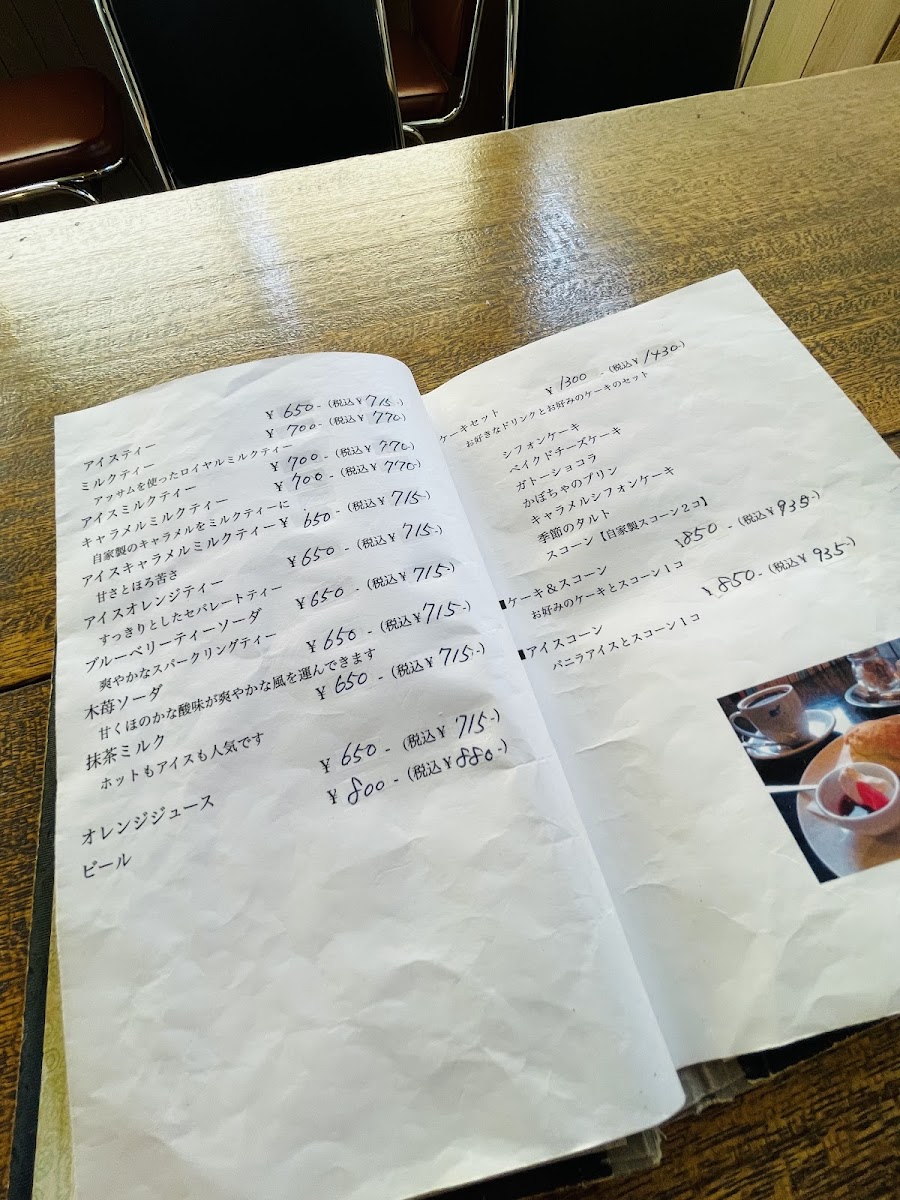 アイスティー ¥650-(税込¥715-)
ミルクティー ¥700-(税込¥770-)
アッサムを使ったロイヤルミルクティー
アイスミルクティー ¥700-(税込¥770-)
キャラメルミルクティー ¥700-(税込¥770-)
自家製のキャラメルをミルクティーに
アイスキャラメルミルクティー ¥650-(税込¥715-)
甘さとほろ苦さ
アイスオレンジティー ¥650-(税込¥715-)
すっきりとしたセパレートティー
ブルーベリーティーソーダ ¥650-(税込¥715-)
爽やかなスパークリングティー
木苺ソーダ ¥650-(税込¥715-)
甘くほのかな酸味が爽やかな風を運んできます
抹茶ミルク ¥650-(税込¥715-)
ホットもアイスも人気です
オレンジジュース ¥650-(税込¥715-)
ビール ¥800-(税込¥880-)
ケーキセット ¥1300-(税込¥1430-)
お好きなドリンクとお好みのケーキのセット
シフォンケーキ
ベイクドチーズケーキ
ガトーショコラ
かぼちゃのプリン
キャラメルシフォンケーキ
季節のタルト
スコーン【自家製スコーン2コ】
■ケーキ&スコーン ¥850-(税込¥935-)
お好みのケーキとスコーン1コ
■アイスコーン ¥850-(税込¥935-)
バニラアイスとスコーン1コ